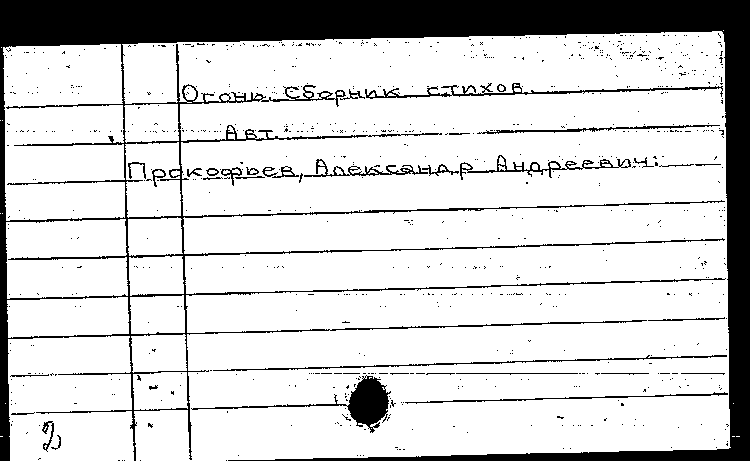 Огонь. Сборник стихов.
Авт.:
Прокофьев, Александр Андреевич.
2